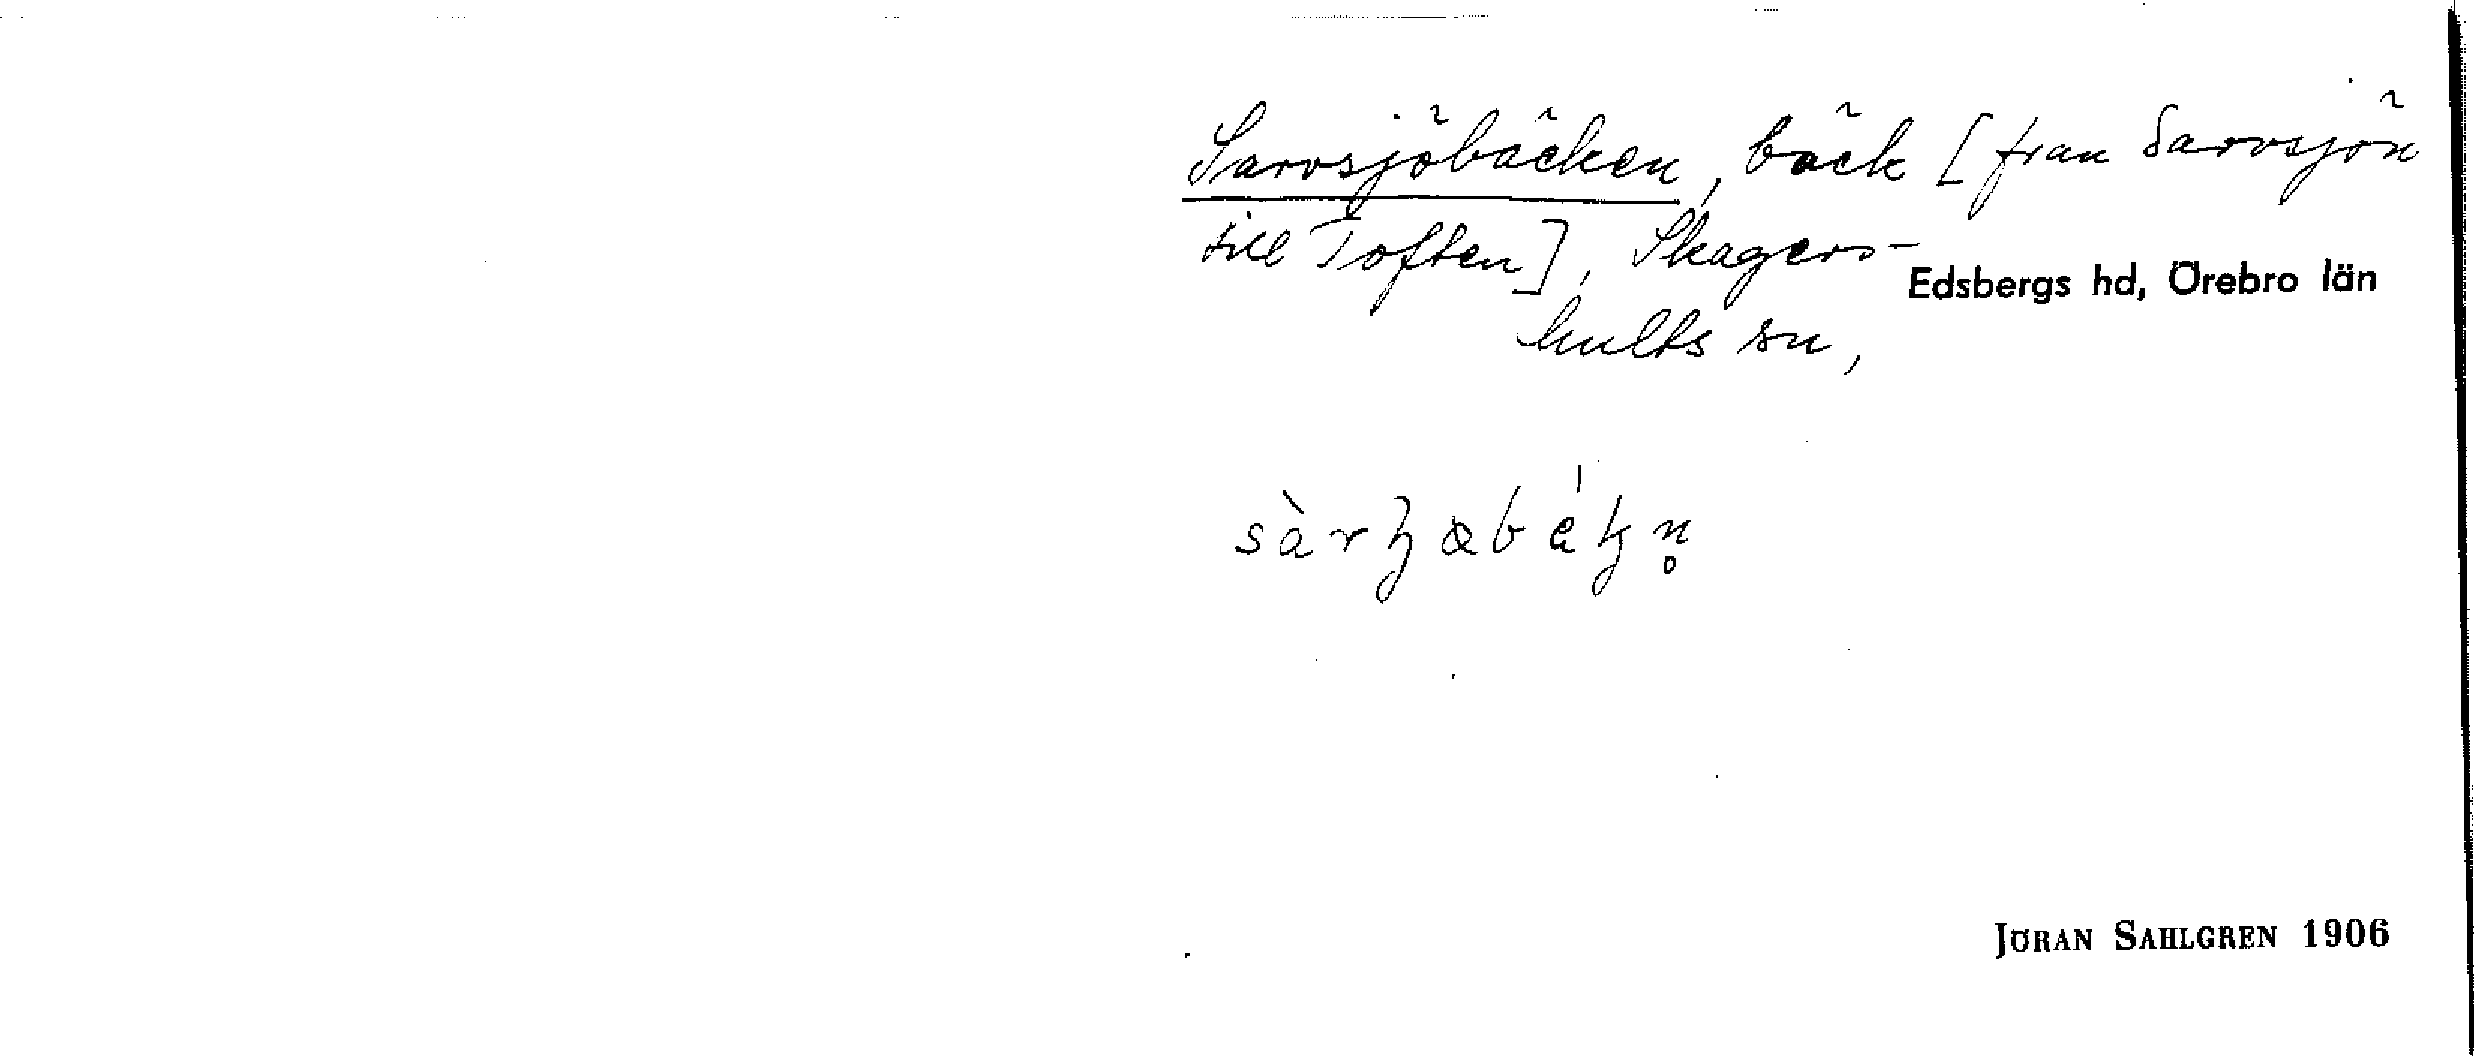 Sarvsjöbäcken, bäck [från Sarvsjön
till Toften], Skagers-
hults sn,
Edsbergs hd, Örebro län
JÖRAN SAHLGREN 1906